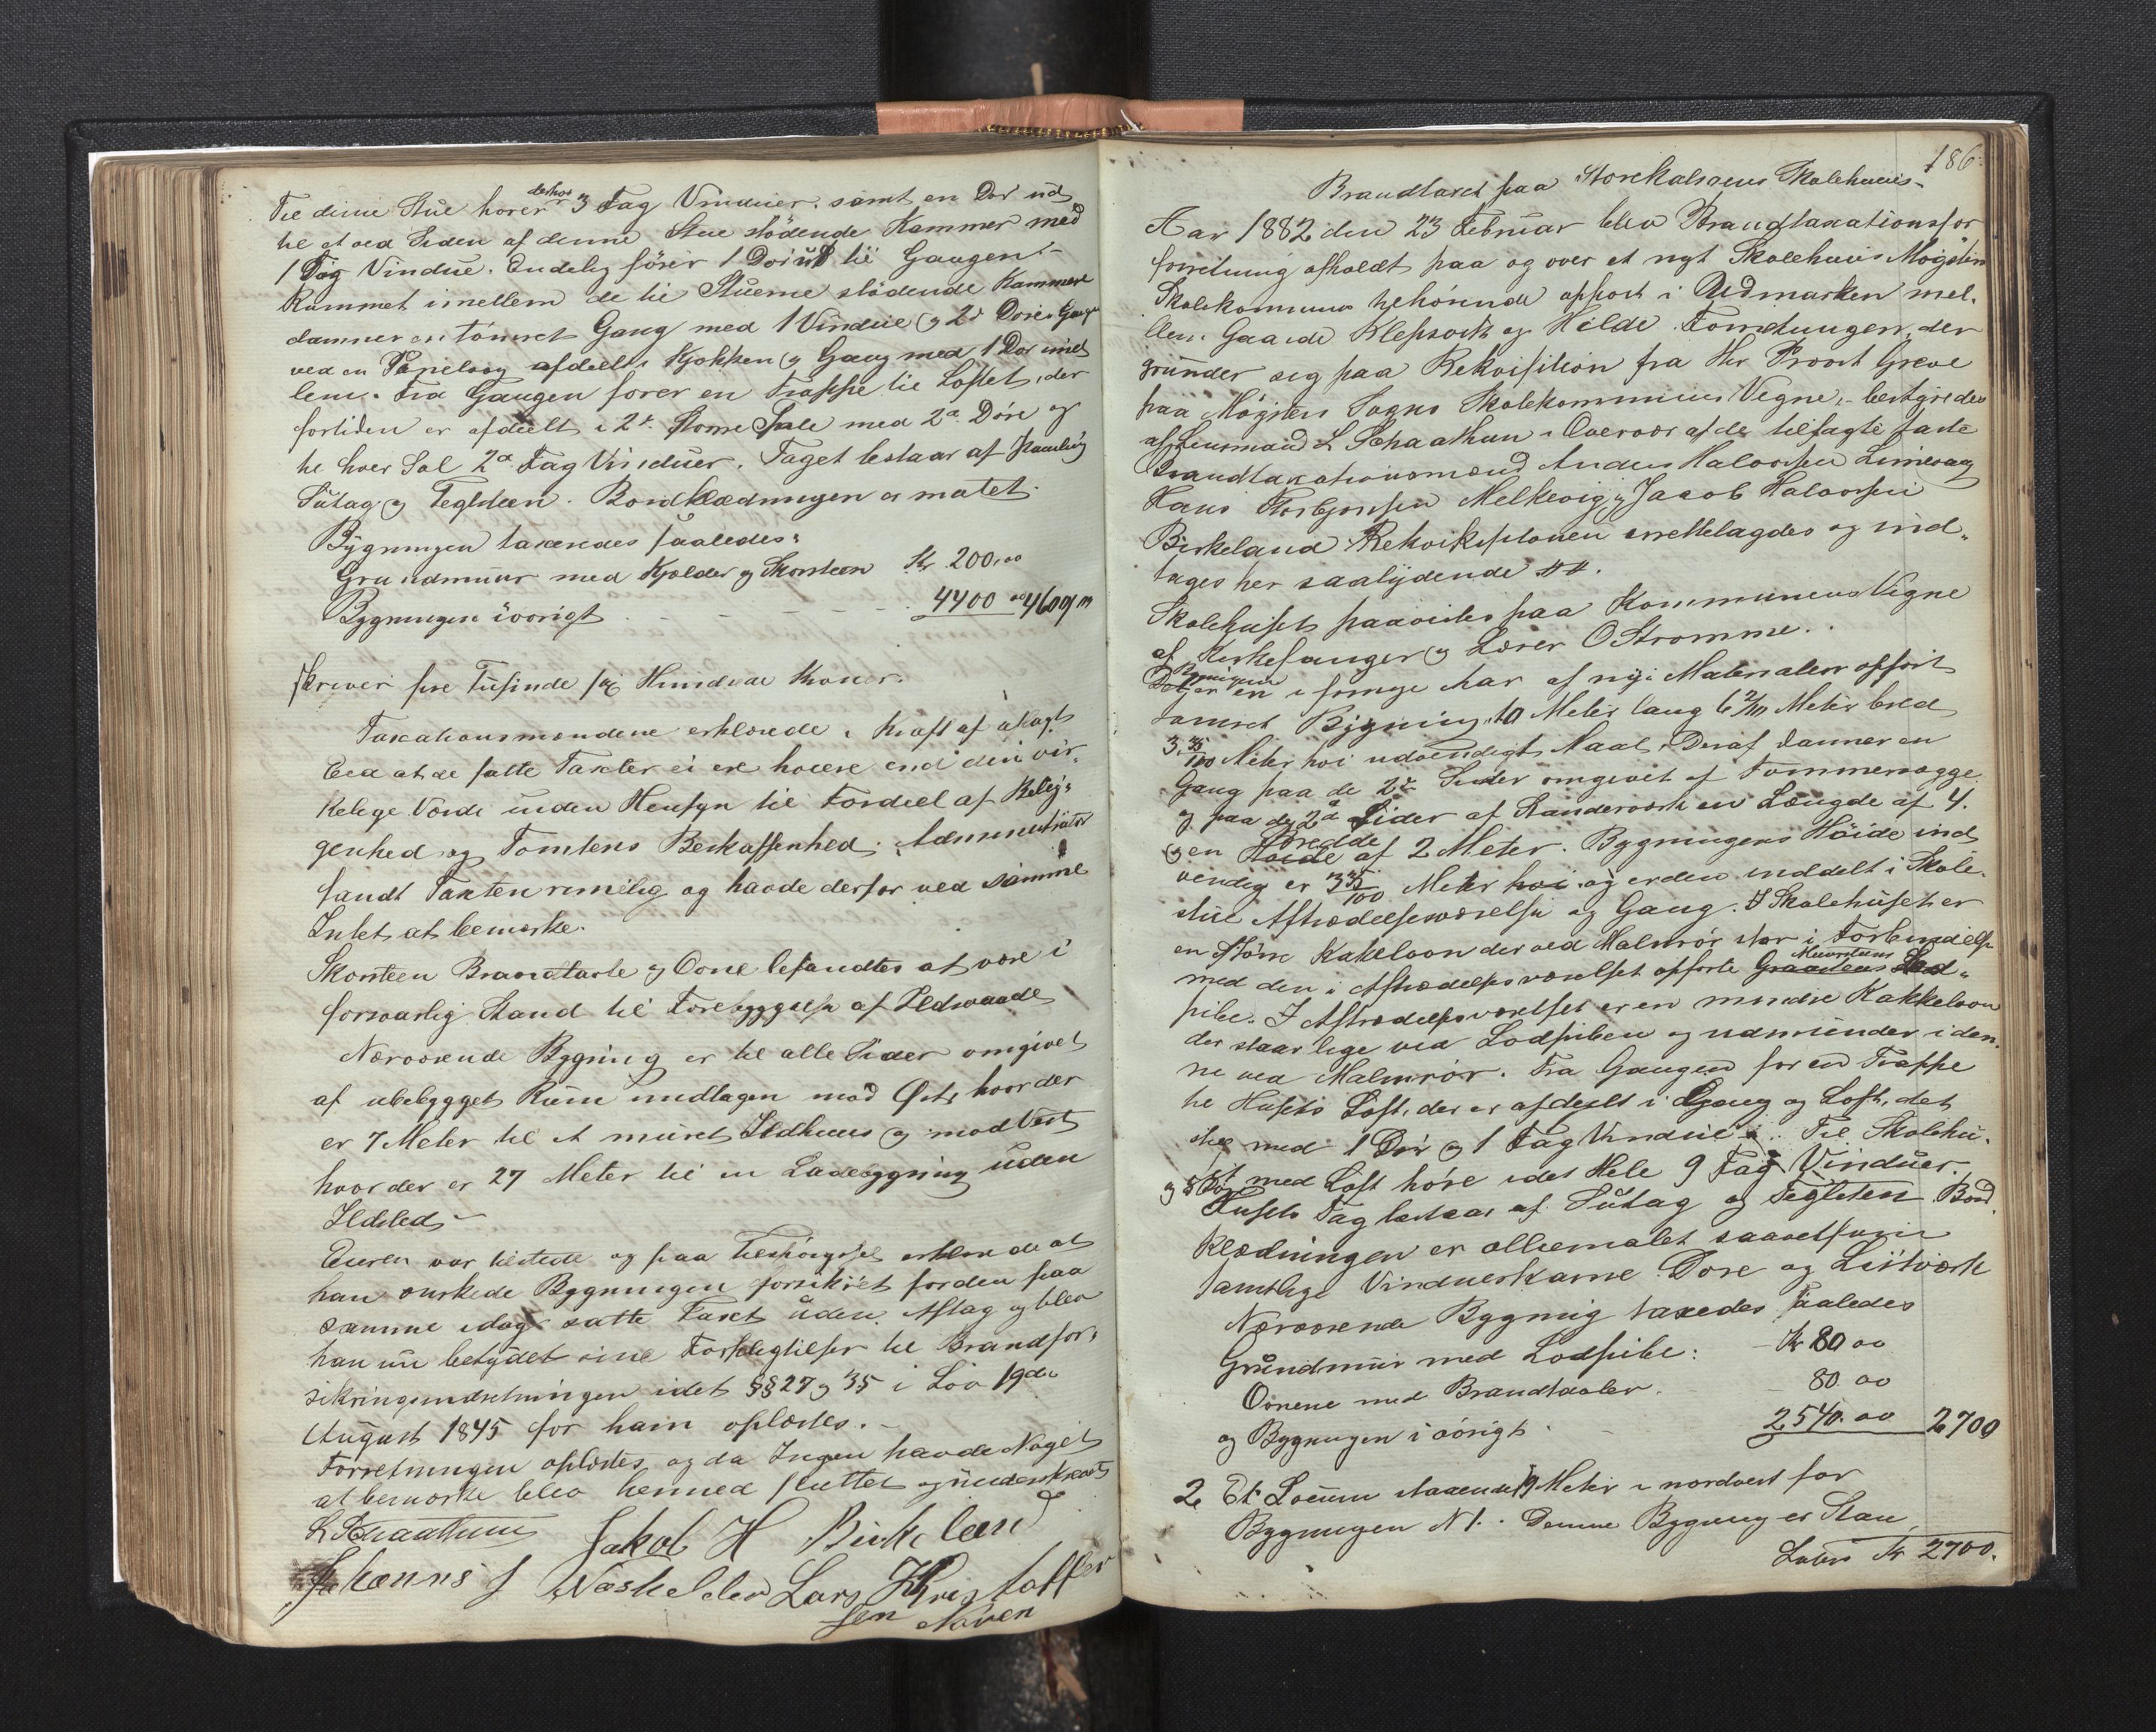 Til denne Stue hører derhos 3 Fag Vinduer. samt en Dør ud
til et ved Siden af denne Stue stödende Kammer med
1 Fag Vindue. Endelig förer 1 Dör ud til Gangen.
Rummet imellem de til Stuerne stödende Kammere
danner en tömret Gang med 1 Vindue og 2de Döre. Gangen
ved en Panelvæg afdeelt i Kjökken og Gang med 1 Dör imel
lem. Fra Gangen forer en Trappe til Loftet, der
fortiden er afdeelt i 2de Store Sale med 2de Döre og
til hver Sal 2de Fag Vinduer. Taget bestaar af
Sutag og Teglsteen. Bordklædningen er malet.
Bygningen taxeredes saaledes:
Grundmuur med Kjelder og Skorsteen Kr. 200,00
Bygningen iövrigt - - - - 4400 00 4600
skriver fire Tusinde sex Hundrede Kroner.
Taxationsmændene erklærede i Kraft af aflagt
Eed at de satte Taxter ei ere höiere end den vir-
kelige Værdi uden Hensyn til Fordeel af Belig-
genhed og Tomtens Beskaffenhed. Administrator
fandt Taxten rimelig og havde derfor ved samme
Intet at bemærke.
Skorsteen Brandtavle og Ovne befandtes at være i
forsvarlig Stand til Forebyggelse af Ildsvaade
Nærværende Bygning er til alle Sider omgivet
af ubebygget Rum undtagen mod Öst, hvor der
er 7 Meter til et muret Ildhuus og mod Vest
hvor der er 27 Meter til en Ladebygning uden
Ildsted -
Eieren var tilstede og paa Tilspörgsel erklærede at
han önskede Bygningen forsikret for den paa
samme idag satte Taxt uden Aftag og blev
han nu betydet sine Forpligtelser til Brandfor-
sikringsindretningen idet §§ 27 og 35 i Lov 19de
August 1845 for ham oplæstes. -
Forretningen oplæstes og da Ingen havde Noget
at bemærke blev hermed sluttet og underskrevet
L Schaathun Jakob H Birkeland
Johannis J Lars Kristoffer
sen
186.
Brandtaxt paa Storekalsøens Skolehuus-
Aar 1882 den 23 Februar blev Brandtaxationsfor
forretning afholdt paa og over et nyt Skolehuus Mögster
Skolekommune tilhörende opfört i Udmarken mel.
lem Gaarde Klepsvik og Hilde. Forretningen, der
grunder sig paa Rekvisition fra Hr Provst Greve
paa Mögster Sogns Skolekommunes Vegne, bestyredes
af Lensmand L Schaathun i Overvær af de tilsagte faste
Brandtaxationsmænd Anders Halvorsen Limesaag
Hans Torbjornsen Melkevig og Jacob Halvorsen
Birkeland. Rekvisitionen irettelagdes og ind-
tages her saalydende ##.
Skolehuset paavistes paa Kommunens Vegne
af Kirkesanger og Lærer O Strømme.
Bygningen
Det er en i forrige Aar af nyi Materialier opfört
tomret Bygning, 10 Meter lang 6 2/10 Meter bred
3, 35/100 Meter höi udvendigt Maal. Deraf danner en
Gang paa de 2de Sider omgivet af Tommervægge
og paa de 2de Sider af Standerværk en Længde af 4.
Bredde
og en Höide af 2 Meter. Bygningens Höide ind
vendig er 3 35/100 Meter höi og er den inddelt i Skole-
stue Aftrædelsesværelse og Gang. I Skolehuset er
en Större Kakelovn der ved Malmrör star i Forbindelse
Muurstens
med den i Aftrædelsesværelset opförte Graastens Lod-
pibe. I Aftrædelsesværelset er en mindre Kakkelovn
der staar lige ved Lodpiben og udmunder i den.
ne ved Malmrör. Fra Gangen för en Trappe
til Husets Loft, der er afdeelt i Gang og Loft, det
med 1 Dör og 1 Fag Vindue. Til Skolehu-
set med Loft höre i det Hele 9 Fag Vinduer.
og 5 Dör
Husets Tag bestaar af Sutag og Teglsten. Bord
klædningen er olliemalet saavelsom
samtlige Vindueskarme Döre og Listværk
Nærværende Bygning taxedes saaledes
Grundmuur med Lodpibe: - Kr 80 00
Ovnene med Brandtavler. - 80. 00
og Bygningen i övrigt - 2540. 00 2700
2, Et Locum staaende 19 Meter i nordvest for
Bygningen N 1. Denne Bygning er Stan
Lateris Kr 2700.